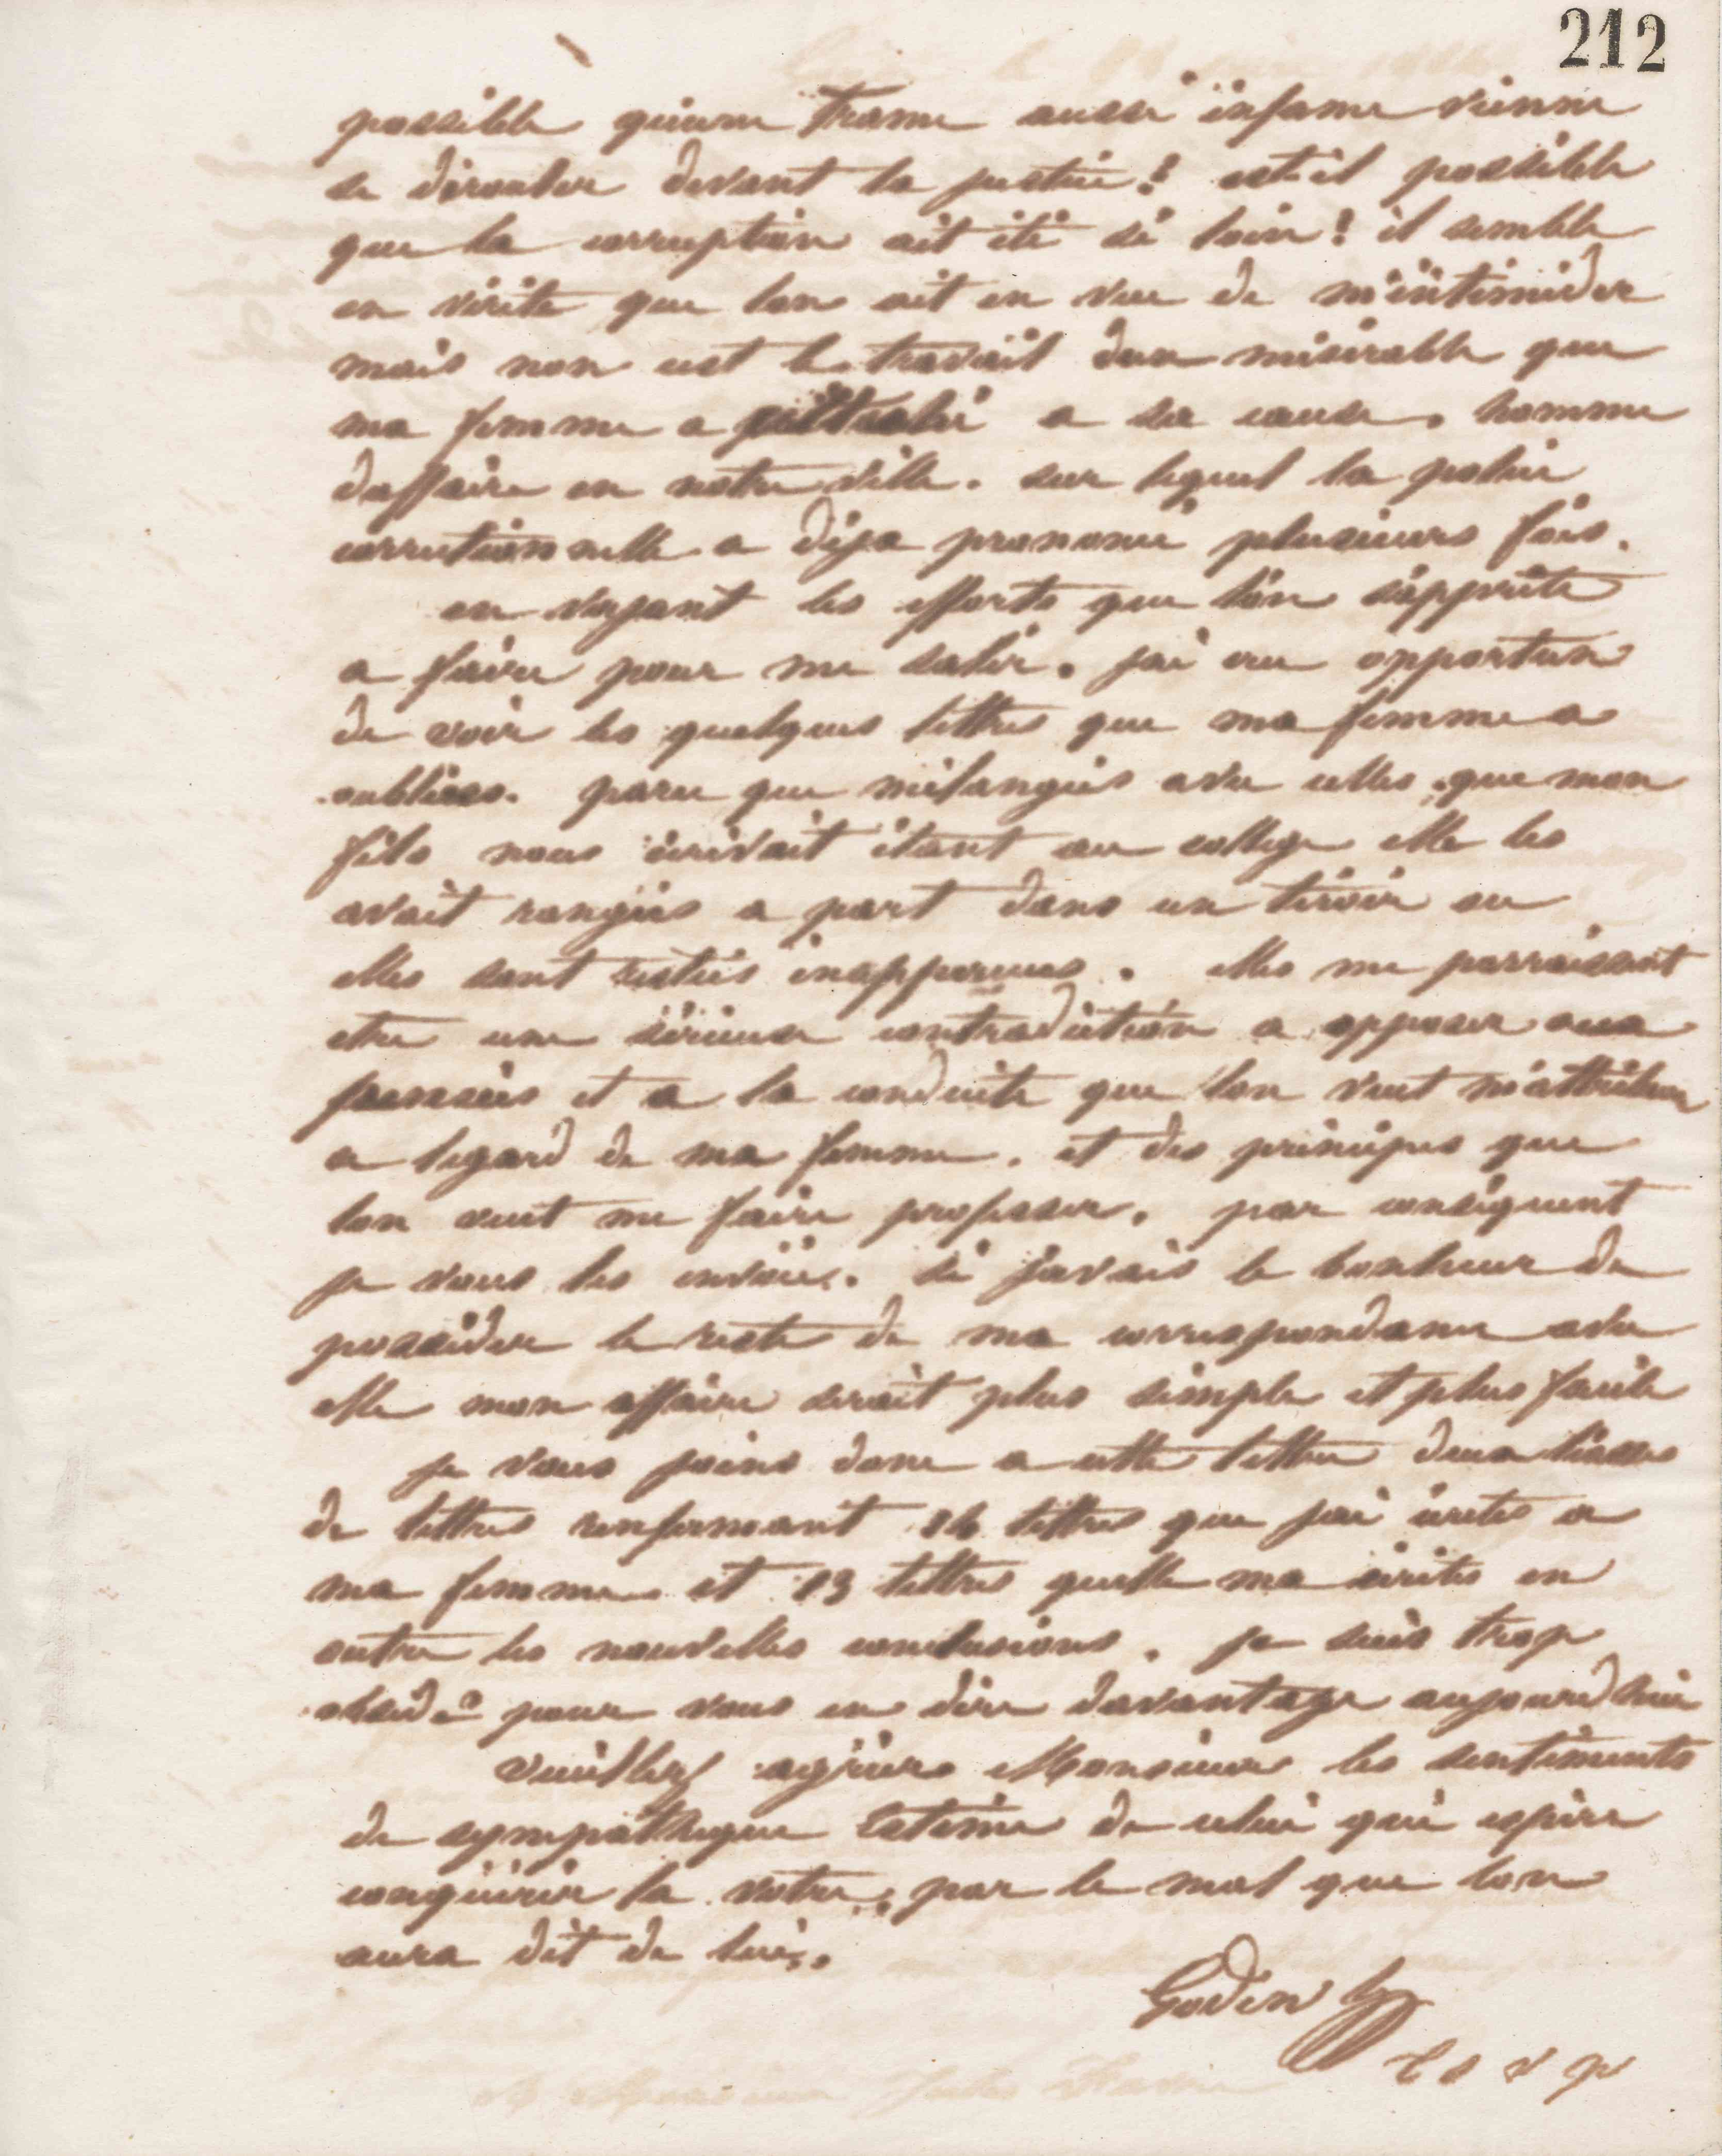 212
possible qu'une trame aussi infame vienne
se dérouler devant la justice! est-il possible
que la corruption ait été si loin! il semble
en vérité que lon ait en vue de m'intimider
mais non cest le travail dun misérable que
ma femme a a sa cause. homme
daffaire en notre ville. sur lequel la police
correctionnelle a déja prononcé plusieurs fois.
en voyant les efforts que l'on s'apprête
a faire pour me salir. jai cru opportun
de voir les quelques lettres que ma femme a
oubliées. parce que mélangées avec celles que mon
fils nous écrivait étant au college elle les
avait rangées a part dans un tiroir ou
elles sont restées inapperçues. elles me parraissent
etre une sérieuse contradiction a opposer aux
pensées et a la conduite que lon veut m'attribuer
a legard de ma femme. et des principes que
lon veut me faire professer. par conséquent
je vous les envoie. si j'avais le bonheur de
posséder le reste de ma correspondance avec
elle mon affaire serait plus simple et plus facile
je vous joins donc a cette lettre deux liasses
de lettres renfermant 16 lettres que jai écrites a
ma femme et 13 lettres quelle ma écrites en
outre les nouvelles conclusions. je suis trop
obsédé pour vous en dire davantage aujourdhui
veuillez agréer Monsieur les sentiments
de sympathique estime de celui qui espère
conquérir la votre, par le mal que lon
aura dit de lui.
Godin
t s v p